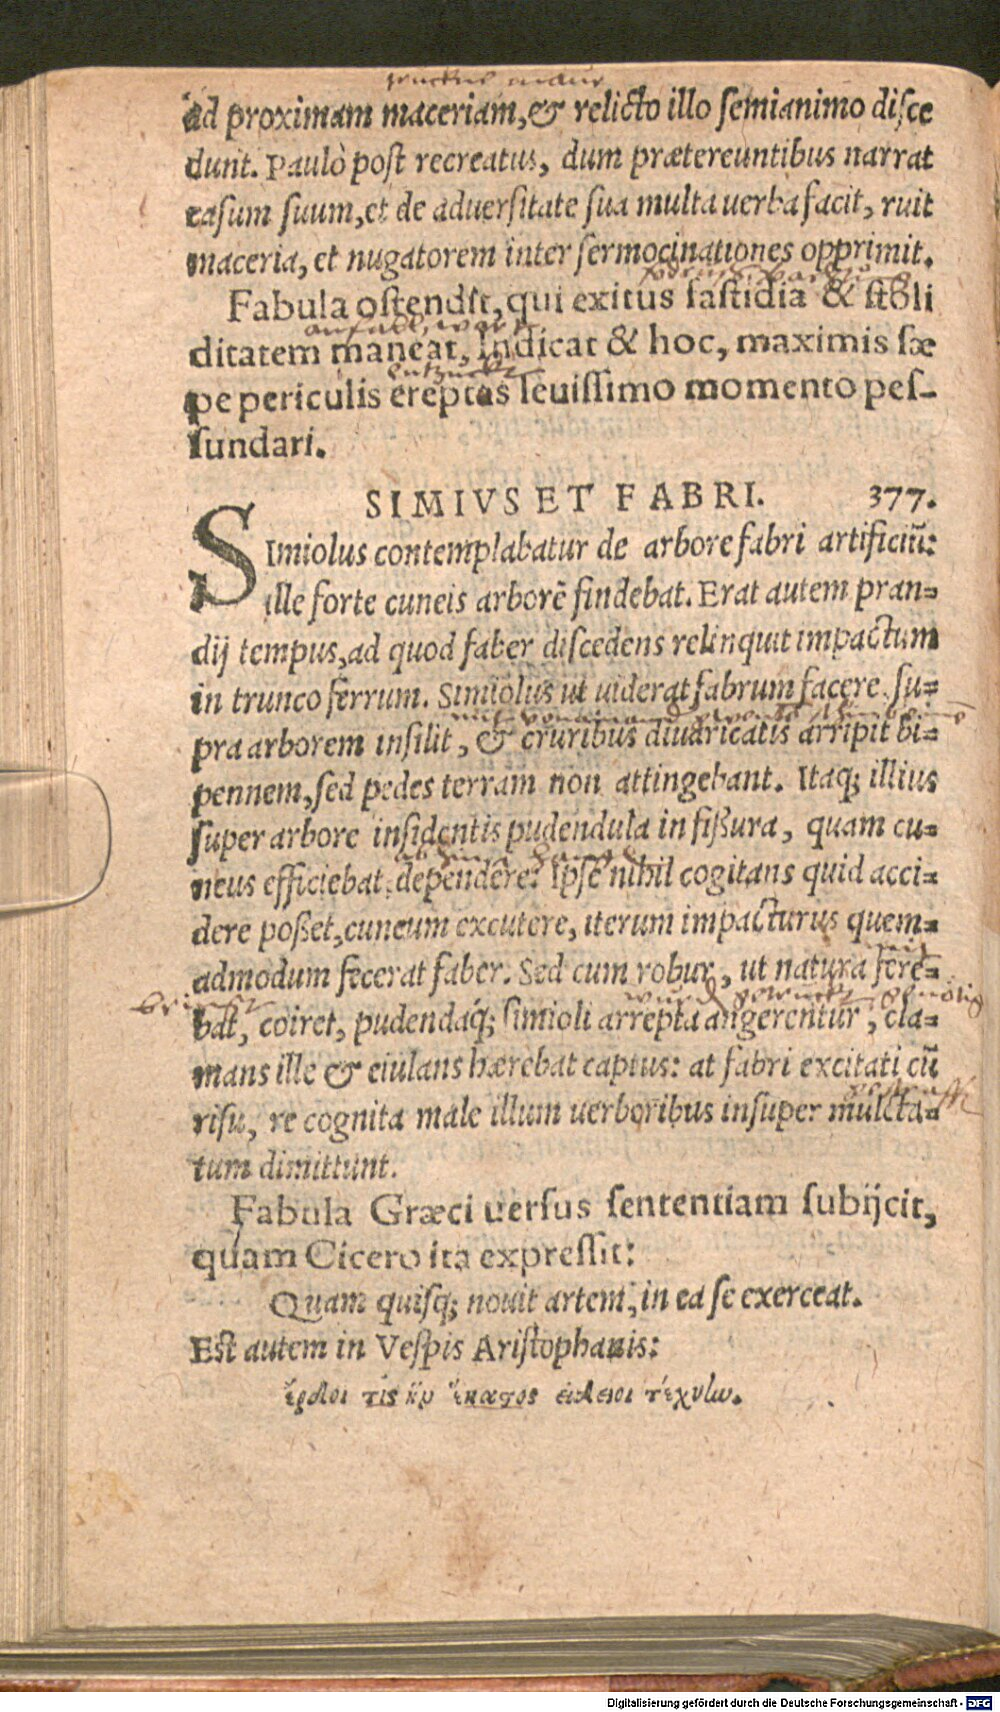 ad proximam maceriam, & relicto illo semianimo disce
dunt. Paulò post recreatus, dum prætereuntibus narrat
casum suum, et de aduersitate sua multa uerba facit, ruit
maceria, et nugatorem inter sermocinationes opprimit.
Fabula ostendit, qui exitus fastidia & stoli
ditatem maneat, Indicat & hoc, maximis sæ
pe periculis ereptos leuissimo momento pes-
sundari.
SIMIVS ET FABRI. 377.
SImiolus contemplabatur de arbore fabri artificiũ:
ille forte cuneis arborẽ findebat. Erat autem pran-
dij tempus, ad quod faber discedens relinquit impactum
in trunco ferrum. Simiolus ut uiderat fabrum facere su-
pra arborem insilit, & cruribus diuaricatis arripit bi-
pennem, sed pedes terram non attingebant. Itaq; illius
super arbore insidentis pudendula in fißura, quam cu-
neus efficiebat, dependere. Ipse nihil cogitans quid acci-
dere poßet, cuneum excutere, iterum impacturus quem-
admodum fecerat faber. Sed cum robur, ut natura fere-
bat, coiret, pudendáq; simioli arrepta angerentur, cla-
mans ille & eiulans hærebat captus: at fabri excitati cũ
risu, re cognita male illum uerboribus insuper mulcta-
tum dimittunt.
Fabula Græci uersus sententiam subijcit,
quam Cicero ita expressit:
Quam quisq; nouit artem, in ea se exerceat.
Est autem in Vespis Aristophanis:
ἔρδοι τὶς ἣν ἕκαστος εἰδείοι τέχνην.
Digitalisierung gefördert durch die Deutsche Forschungsgemeinschaft - DFG